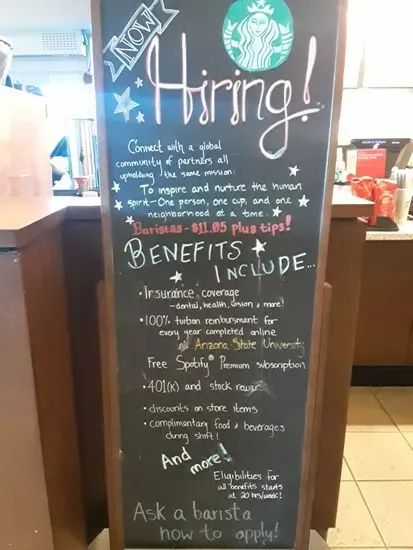 NOW
Hiring!
Connect with a global
community of partners all
upholding the same mission:
To inspire and nurture the human
spirit—One person, one cup, and one
neighborhood at a time.
Baristas - $11.05 plus tips!
BENEFITS
INCLUDE...
• Insurance coverage
- dental, health, vision & more!
• 100% tuition reimbursment for
every year completed online
@ Arizona State University
Free Spotify® Premium subscription
• 401(K) and stock rewar
• discounts on store items
• complimentary food & beverages
during shift!
And
more!
Eligibilities for
all benefits starts
at 20 hrs/week!
Ask a barista
how to apply!